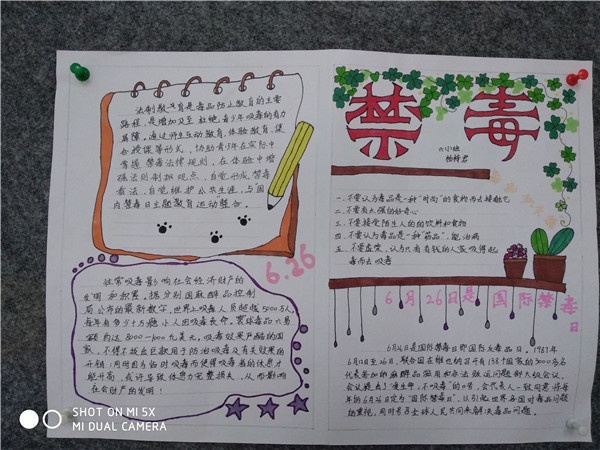 法制教育是毒品防止教育的主要
路程，是增加及至杜绝，青少年吸毒的有力
屏障。通过师生互动教育，体验教育，集
会授课等形式，协助青少年在实际中
掌握禁毒法律规则，在体验中增
强法则制抵观点，自觉形成禁毒
看法，自觉维护公共生涯，与国
内禁毒日主题教育运动整合。
6.26
禁毒
六小班
一、不要认为毒品是一种“时尚”的食物而去接触它
二、不要有太强的好奇心
三、不要接受陌生人的的饮料和食物
四、不要认为毒品是一种“药品”，能治病
五、不要虚荣，认为只有有钱的人家吸得起
毒而去吸毒
6月26日是国际禁毒
日
经常吸毒影响社会经济财产的
发明和积累，据分别国麻醉品控制
局公布的最新数字，世界上吸毒人员超越5000万人，
每年有多少十万瘾小人因吸毒丧命。寰球毒品交易
额约达8000-1000亿美元。吸毒效果严酷的国
家，不得不拨出巨款用于防治吸毒及有关效果的
开销；同时因为临时吸毒而使得吸毒者的休息才
能升高，或许导致休息力完整损失，从而影响
社会财产的发明！
6月26日是国际禁毒日即国际反毒品日。1987年
6月12日至26日，联合国在维也纳召开有138个国家的3000多名
代表参加的麻醉品滥用和非法贩运问题部长级会议，
会议提出了“爱生命，不吸毒”的口号，会代表人一致同意将每
年的6月26日定为“国际禁毒日”，以引起世界各国对毒品问题
的重视，同时号召全球人民共同来解决毒品问题。
SHOT ON MI 5X
MI DUAL CAMERA